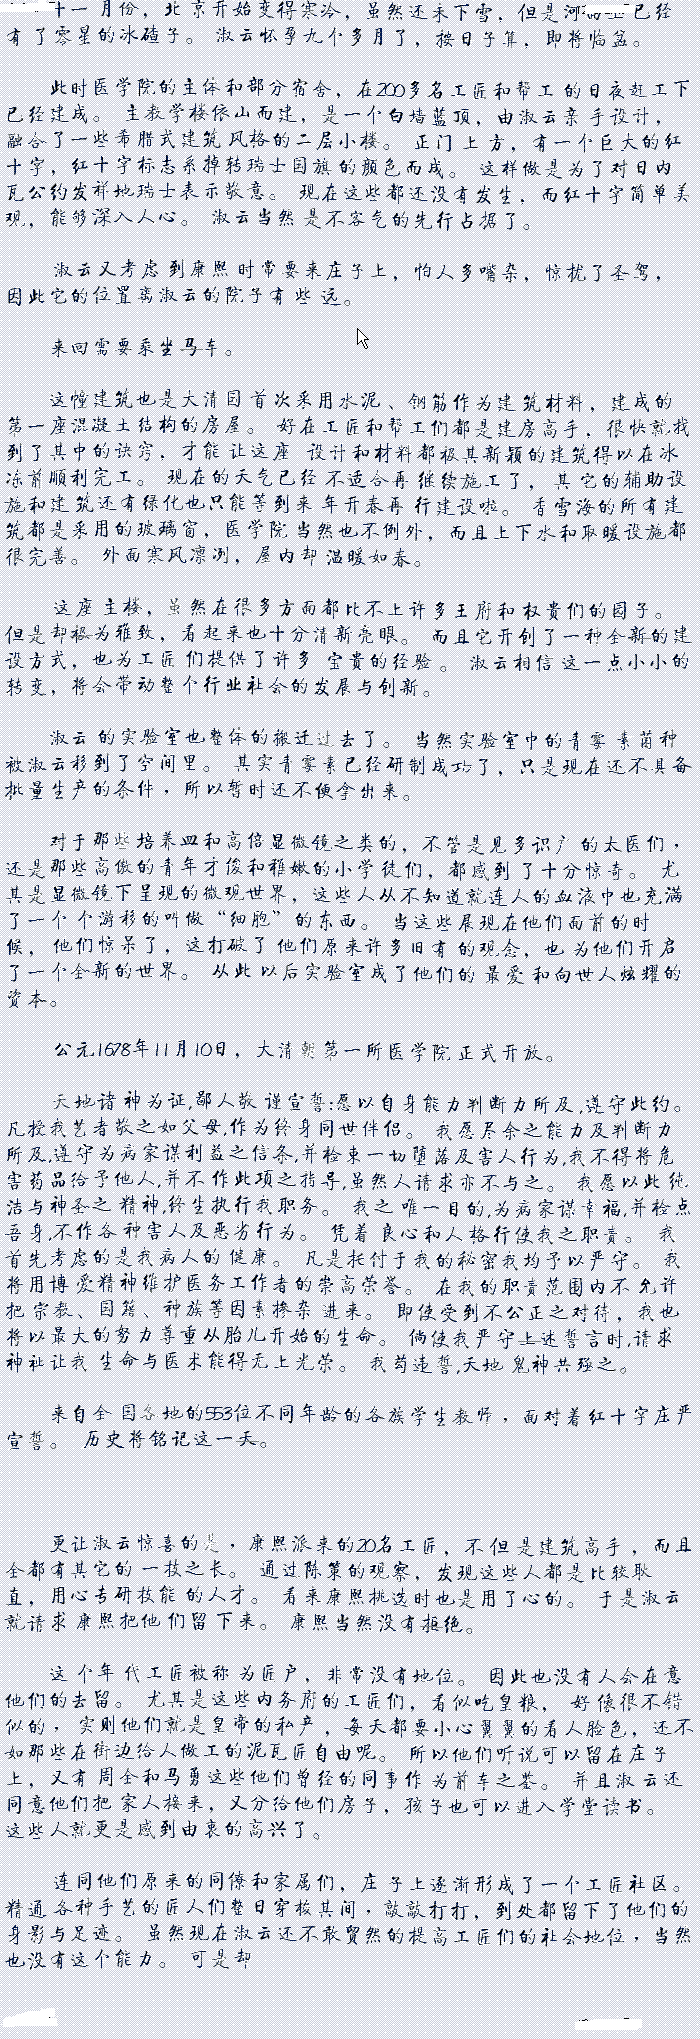 十一月份，北京开始变得寒冷，虽然还未下雪，但是河 已经
有了零星的冰碴子。 淑云怀孕九个多月了，按日子算，即将临盆。
此时医学院的主体和部分宿舍，在200多名工匠和帮工的日夜赶工下
已经建成。 主教学楼依山而建，是一个白墙蓝顶，由淑云亲手设计，
融合了一些希腊式建筑风格的二层小楼。 正门上方，有一个巨大的红
十字，红十字标志系掉转瑞士国旗的颜色而成。 这样做是为了对日内
瓦公约发祥地瑞士表示敬意。 现在这些都还没有发生，而红十字简单美
观，能够深入人心。 淑云当然是不客气的先行占据了。
淑云又考虑到康熙时常要来庄子上，怕人多嘴杂，惊扰了圣驾，
因此它的位置离淑云的院子有些远。
来回需要乘坐马车。
这幢建筑也是大清国首次采用水泥、钢筋作为建筑材料，建成的
第一座混凝土结构的房屋。 好在工匠和帮工们都是建房高手，很快就找
到了其中的诀窍，才能让这座 设计和材料都极其新颖的建筑得以在冰
冻前顺利完工。 现在的天气已经不适合再继续施工了，其它的辅助设
施和建筑还有绿化也只能等到来年开春再行建设啦。 香雪海的所有建
筑都是采用的玻璃窗，医学院当然也不例外，而且上下水和取暖设施都
很完善。 外面寒风凛冽，屋内却温暖如春。
这座主楼，虽然在很多方面都比不上许多王府和权贵们的园子。
但是却极为雅致，看起来也十分清新亮眼。 而且它开创了一种全新的建
设方式，也为工匠们提供了许多宝贵的经验。 淑云相信这一点小小的
转变，将会带动整个行业社会的发展与创新。
淑云的实验室也整体的搬迁过去了。 当然实验室中的青霉素菌种
被淑云移到了空间里。 其实青霉素已经研制成功了，只是现在还不具备
批量生产的条件，所以暂时还不便拿出来。
对于那些培养皿和高倍显微镜之类的，不管是见多识广的太医们，
还是那些高傲的青年才俊和稚嫩的小学徒们，都感到了十分惊奇。 尤
其是显微镜下呈现的微观世界，这些人从不知道就连人的血液中也充满
了一个个游移的叫做“细胞”的东西。 当这些展现在他们面前的时
候，他们惊呆了，这打破了他们原来许多旧有的观念，也为他们开启
了一个全新的世界。 从此以后实验室成了他们的最爱和向世人炫耀的
资本。
公元1678年11月10日，大清朝第一所医学院正式开放。
天地诸神为证,鄙人敬谨宣誓:愿以自身能力判断力所及,遵守此约。
凡授我艺者敬之如父母,作为终身同世伴侣。 我愿尽余之能力及判断力
所及,遵守为病家谋利益之信条,并检束一切堕落及害人行为,我不得将危
害药品给予他人,并不作此项之指导,虽然人请求亦不与之。 我愿以此纯
洁与神圣之精神,终生执行我职务。 我之唯一目的,为病家谋幸福,并检点
吾身,不作各种害人及恶劣行为。 凭着良心和人格行使我之职责。 我
首先考虑的是我病人的健康。 凡是托付于我的秘密我均予以严守。 我
将用博爱精神维护医务工作者的崇高荣誉。 在我的职责范围内不允许
把宗教、国籍、种族等因素掺杂进来。 即使受到不公正之对待，我也
将以最大的努力尊重从胎儿开始的生命。 倘使我严守上述誓言时,请求
神祉让我生命与医术能得无上光荣。 我苟违誓,天地鬼神共殛之。
来自全国各地的553位不同年龄的各族学生教师，面对着红十字庄严
宣誓。 历史将铭记这一天。
更让淑云惊喜的是，康熙派来的20名工匠，不但是建筑高手，而且
全都有其它的一技之长。 通过陈策的观察，发现这些人都是比较耿
直，用心专研技能的人才。 看来康熙挑选时也是用了心的。 于是淑云
就请求康熙把他们留下来。 康熙当然没有拒绝。
这个年代工匠被称为匠户，非常没有地位。 因此也没有人会在意
他们的去留。 尤其是这些内务府的工匠们，看似吃皇粮，好像很不错
似的，实则他们就是皇帝的私产，每天都要小心翼翼的看人脸色，还不
如那些在街边给人做工的泥瓦匠自由呢。 所以他们听说可以留在庄子
上，又有周全和马勇这些他们曾经的同事作为前车之鉴。 并且淑云还
同意他们把家人接来，又分给他们房子，孩子也可以进入学堂读书。
这些人就更是感到由衷的高兴了。
连同他们原来的同僚和家属们，庄子上逐渐形成了一个工匠社区。
精通各种手艺的匠人们整日穿梭其间，敲敲打打，到处都留下了他们的
身影与足迹。 虽然现在淑云还不敢贸然的提高工匠们的社会地位，当然
也没有这个能力。 可是却